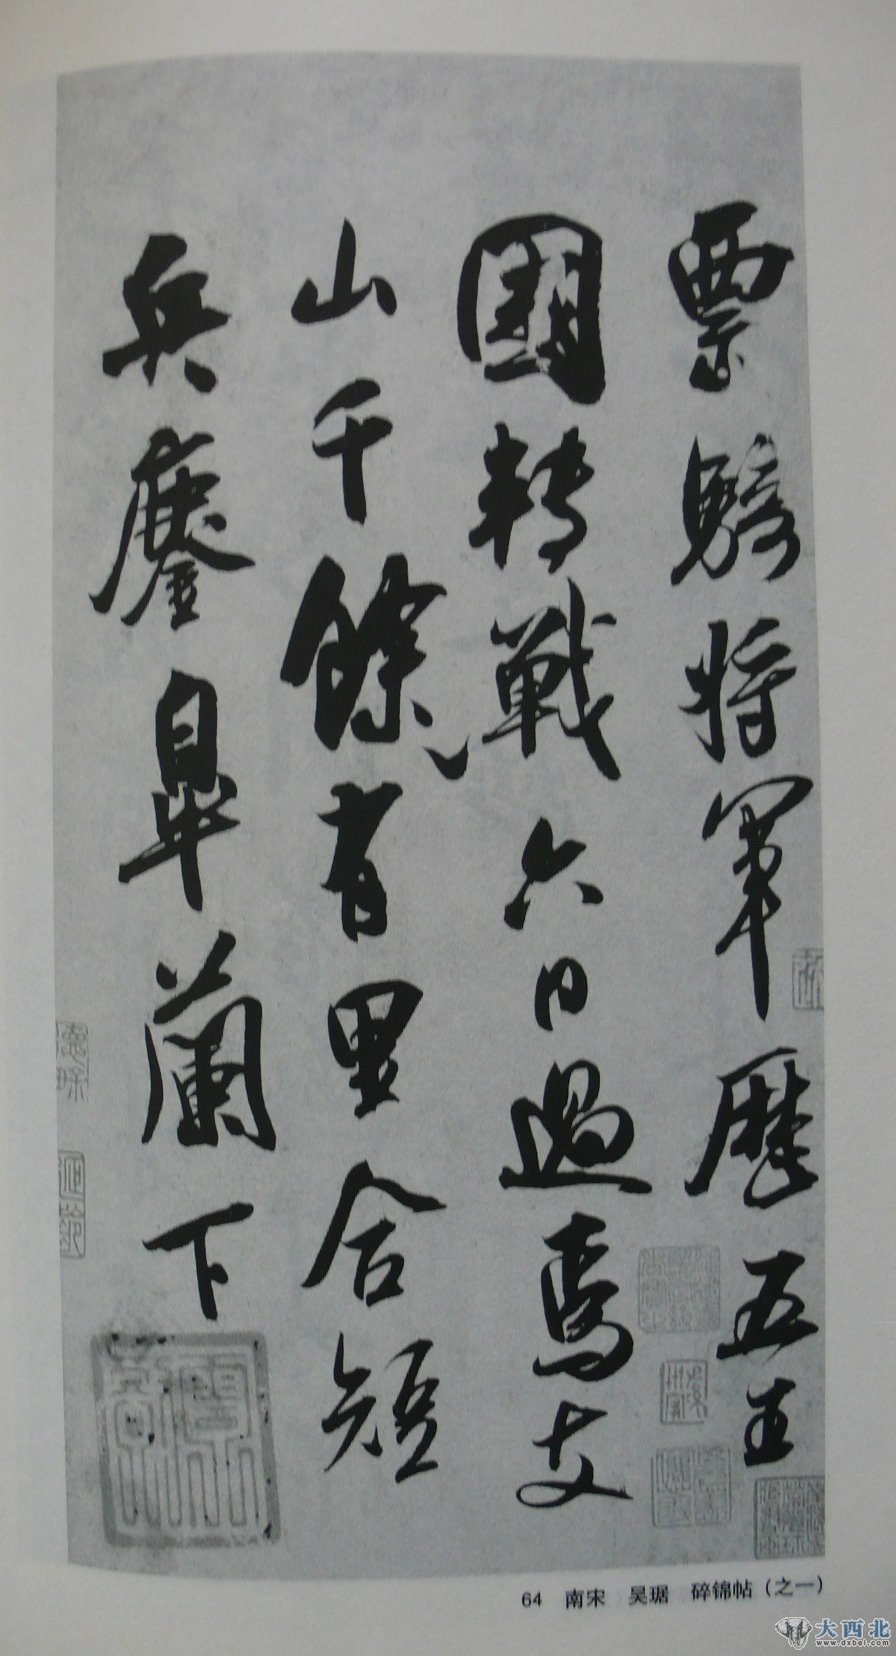 票騎將軍歷五王
國轉戰六日過焉支
山千餘有里合短
兵鏖皐蘭下
64 南宋 吴琚 碎锦帖（之一）
大西北
www.dxbei.com